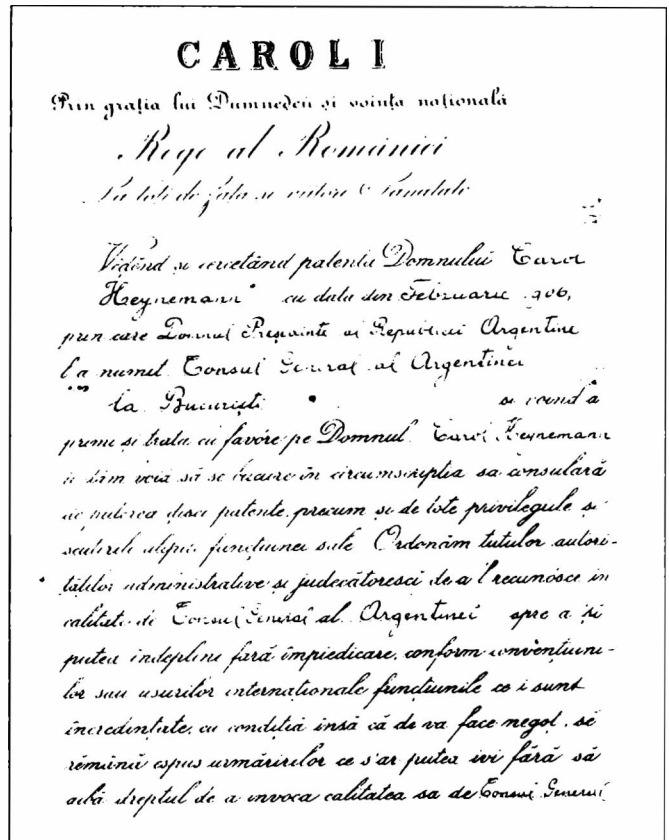 CAROL I
Prin grația lui Dumnedeu și voința națională
Rege al României
La toți de față și viitori Sănătate
Vĕdênd și cercetând patenta Domnului Carol
Heynemann cu data din Februarie 906,
prin care Domnul Președinte al Republicei Argentine
l'a numit Consul General al Argentinei
la București și voind a
primi și trata cu favóre pe Domnul Carol Heynemann
îi dăm voiă să se bucure în circumscripția sa consulară
de puterea disei patente, precum și de tóte privilegiile și
scutirile alepte funcțiunei sale Ordonăm tutulor autori-
tăților administrative și judecătoresci de a'l recunósce în
calitate de Consul General al Argentinei spre a și
putea îndeplini fără împiedicare, conform convențiuni-
lor sau usurilor internaționale funcțiunile ce i sunt
încredințate, cu condiția însă că de va face negoț, să
rĕmână espus urmăririlor ce s'ar putea ivi fără să
aibă dreptul de a invoca calitatea sa de Consul General